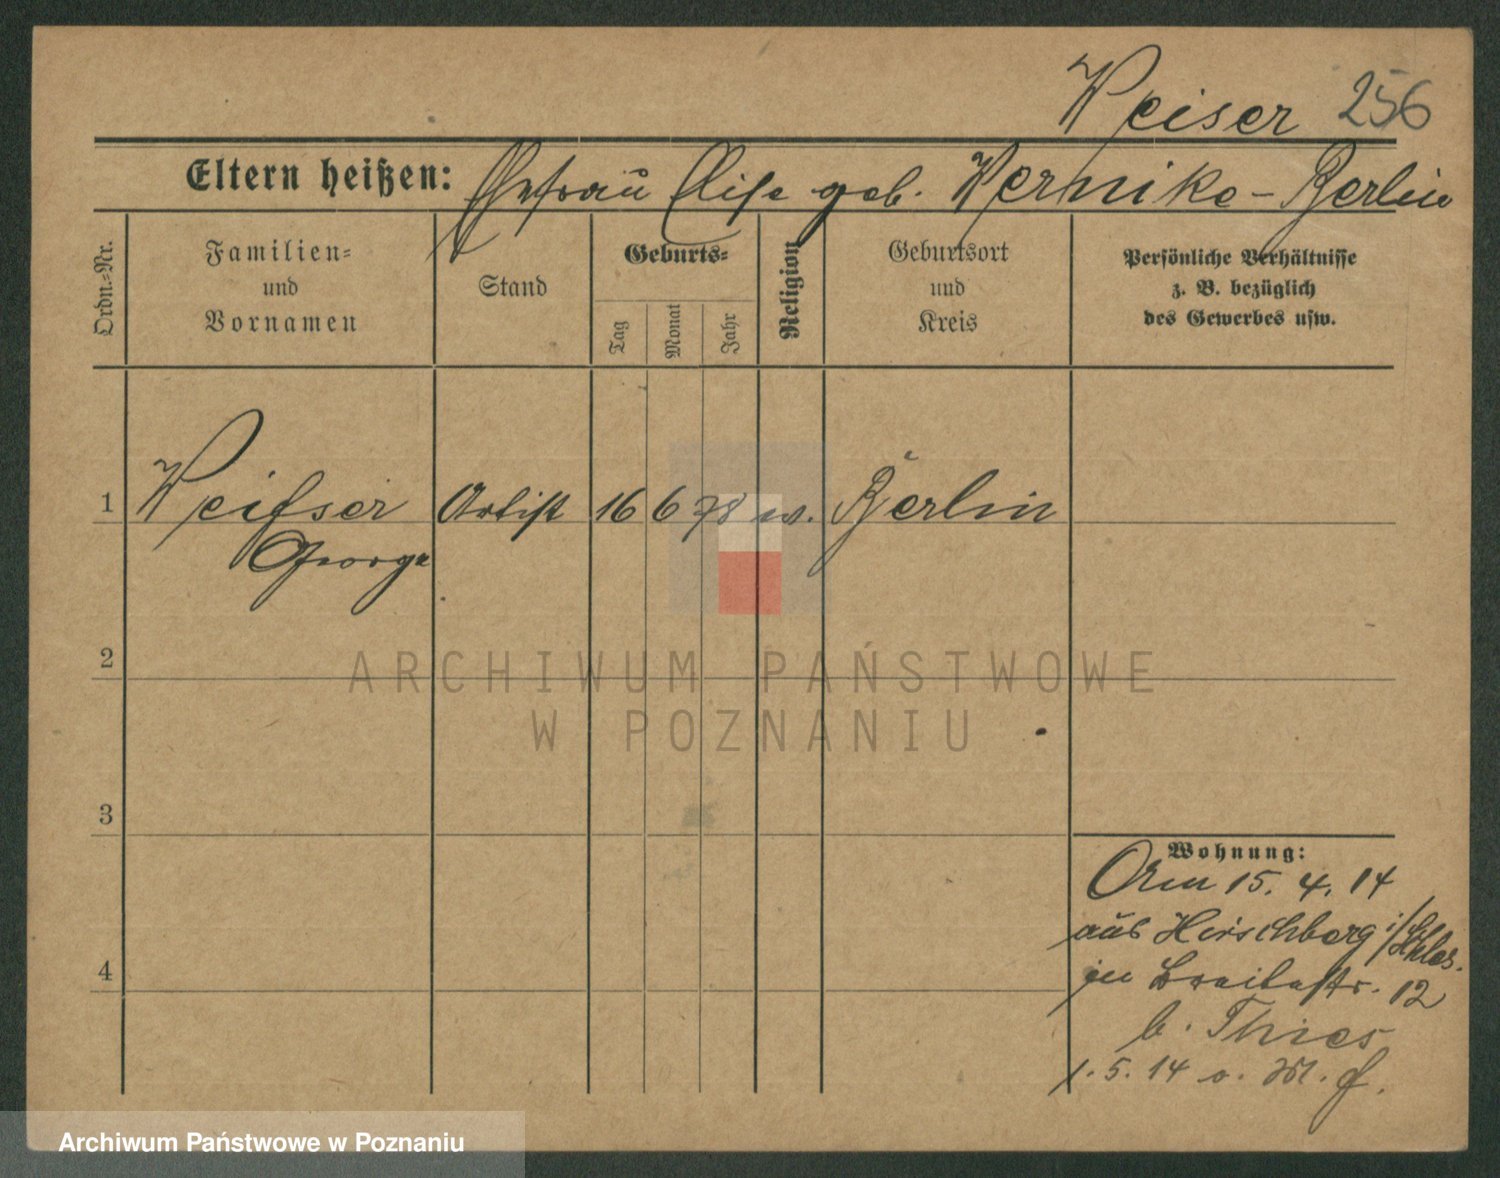 Weiser 256
Eltern heißen: Ehefrau Elise geb. Wernike - Berlin
Ordn.-Nr.
Familien-
und
Vornamen
Stand
Geburts-
Tag
Monat
Jahr
Religion
Geburtsort
und
Kreis
Persönliche Verhältnisse
z. B. bezüglich
des Gewerbes usw.
1 Weihser Artist 16 6 78 ev. Berlin
George
2
ARCHIWUM PAŃSTWOWE
W POZNANIU
3
Wohnung:
15. 4. 14
aus Hirschberg i/Schles.
in Breitestr. 12
b. Thies
1. 5. 14
4
Archiwum Państwowe w Poznaniu